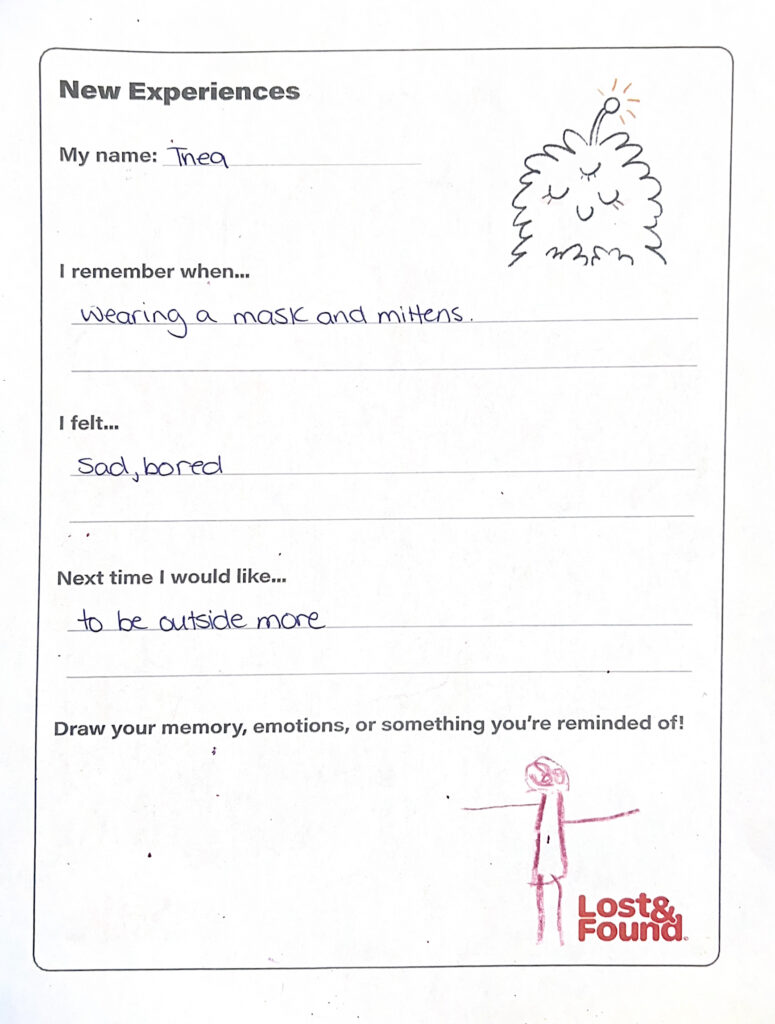 New Experiences
My name: Thea
I remember when...
wearing a mask and mittens.
I felt...
sad, bored
Next time I would like...
to be outside more
Draw your memory, emotions, or something you're reminded of!
Lost&
Found